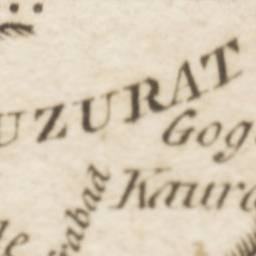 UZURAT
Gog
Kaura
rabad